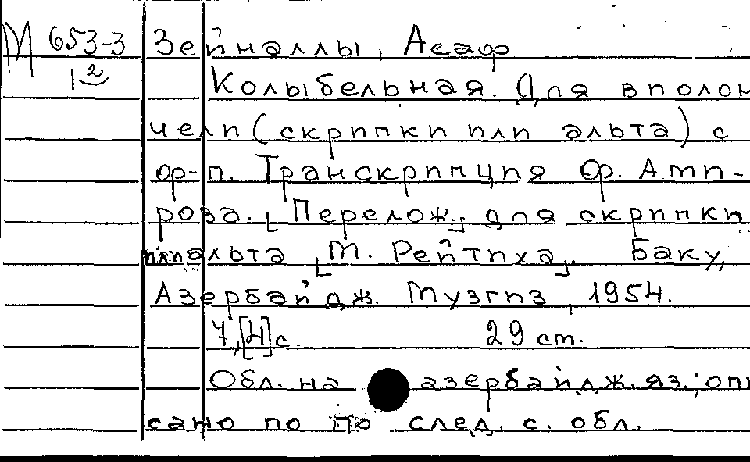 М 653-3 Зейналлы, Асаф
1 2 Колыбельная. Для виолон
чели (скрипки или альта) с
ф-п. Транскрипция Ф. Ами-
рова. [Перелож. для скрипки
или альта М. Рейтиха]. Баку,
Азербайдж. Музгиз, 1954.
7,[4]с. 29 см.
Обл. на азербайдж.яз.; опи
сано по по след. с. обл.